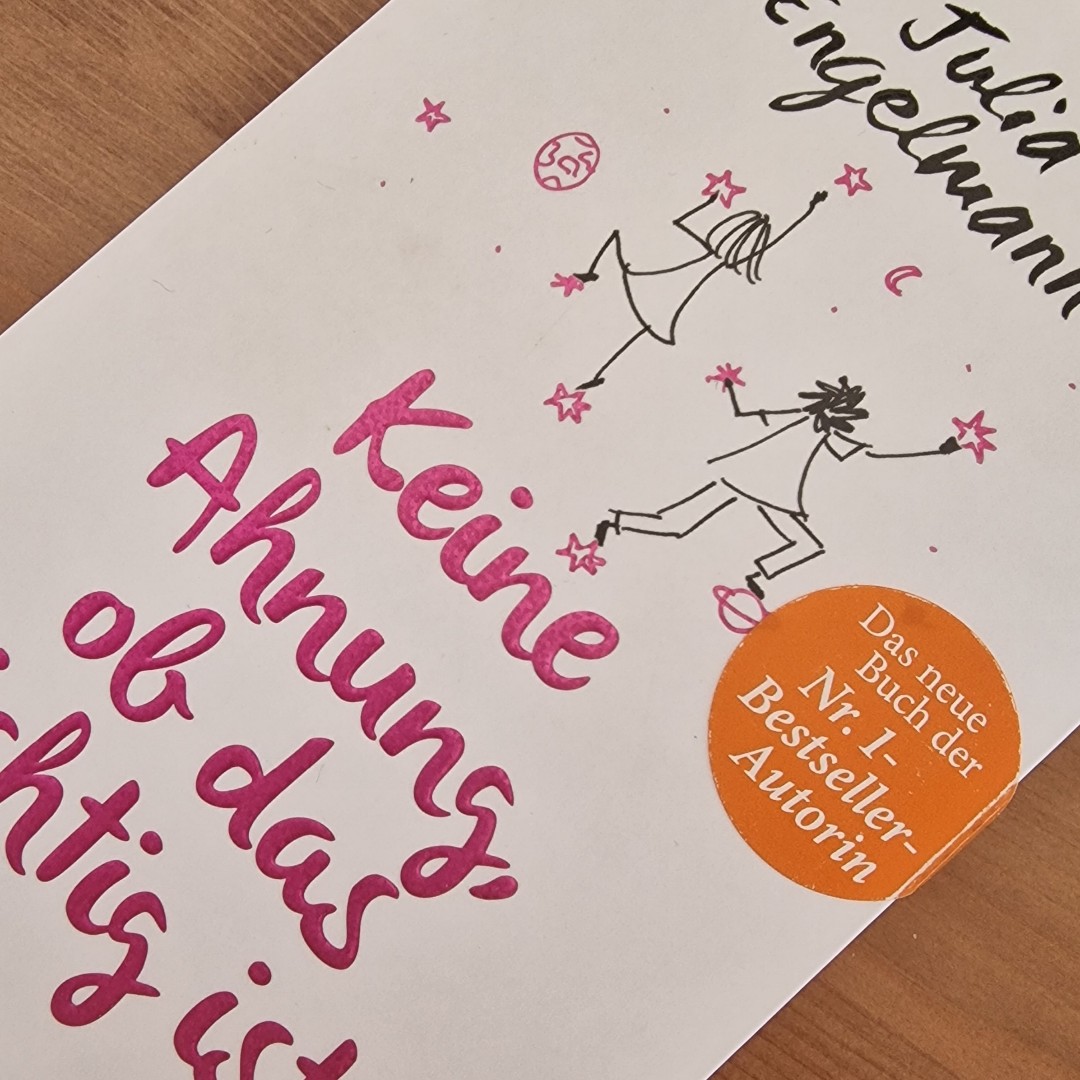 Julia
Engelmann
Keine
Ahnung,
ob das
richtig ist
Das neue
Buch der
Nr. 1-
Bestseller-
Autorin